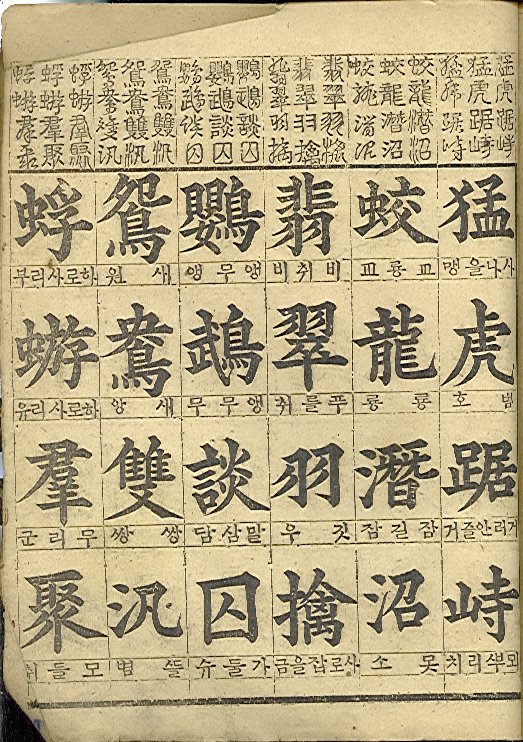 猛虎踞峙
猛虎踞峙
猛虎踞峙
蛟龍潛沼
蛟龍潛沼
蛟龍潛沼
翡翠羽擒
翡翠羽擒
翡翠羽擒
鸚鵡談囚
鸚鵡談囚
鸚鵡談囚
鴛鴦雙汎
鴛鴦雙汎
鴛鴦雙汎
蜉蝣羣聚
蜉蝣羣聚
蜉蝣羣聚
猛
사나을맹
虎
범호
踞
거러안즐거
峙
蛟
교룡교
龍
룡룡
潛
잠길잠
沼
못소
翡
비취비
翠
푸를취
羽
깃우
擒
사로잡을금
鸚
앵무앵
鵡
앵무무
談
말삼담
囚
가둘슈
鴛
새원
鴦
새앙
雙
쌍쌍
汎
뜰범
蜉
하로사리부
蝣
하로사리유
羣
무리군
聚
모들취